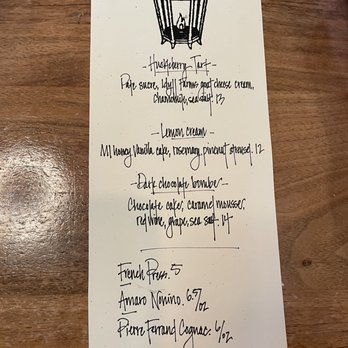 -Huckleberry Tart-
Pate sucre, Idyll Farms goat cheese cream,
chamomile, sea salt. 13
-Lemon cream-
MI honey vanilla cake, rosemary, pinenut streusel. 12
-Dark chocolate bombe-
Chocolate cake, caramel mousse,
red wine, grape, sea salt. 14
French Press. 5
Amaro Nonino. 6.5/oz
Pierre Ferrand Cognac. 6/oz